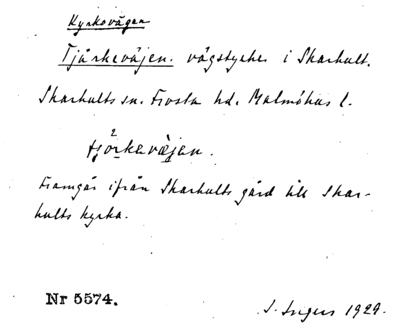 Kyrkovägen
Tjärkeväjen. vägstycke i Skarhult.
Skarhults sn. Frosta hd. Malmöhus l.
Framgår ifrån Skarhults gård till Skar-
hults kyrka.
Nr 5574.
I. Ingers 1929.